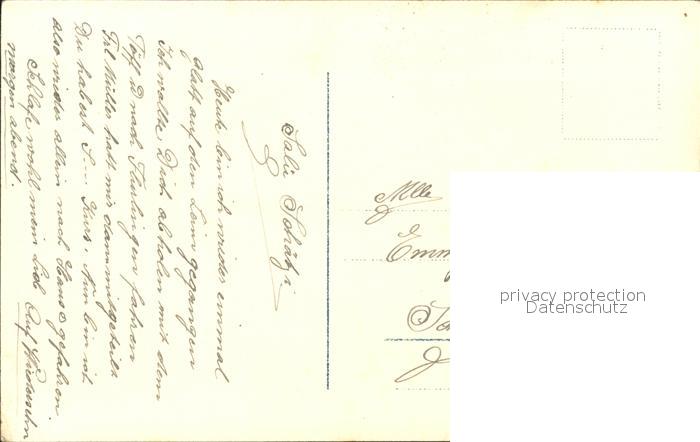 Salü Schätzi
Heute bin ich wieder einmal
glatt auf den Leim gegangen
Ich wollte Dich abholen mit dem
Töff & nach Flurlingen fahren
Frl Müller hatt mir dann mitgeteilt
Du habest S... Kurs. Nun bin ich
also wieder allein nach Hause gefahren
Schlafe wohl mein Lieb Auf Wiedersehn
morgen abend.
Mlle
Emm
privacy protection
Datenschutz